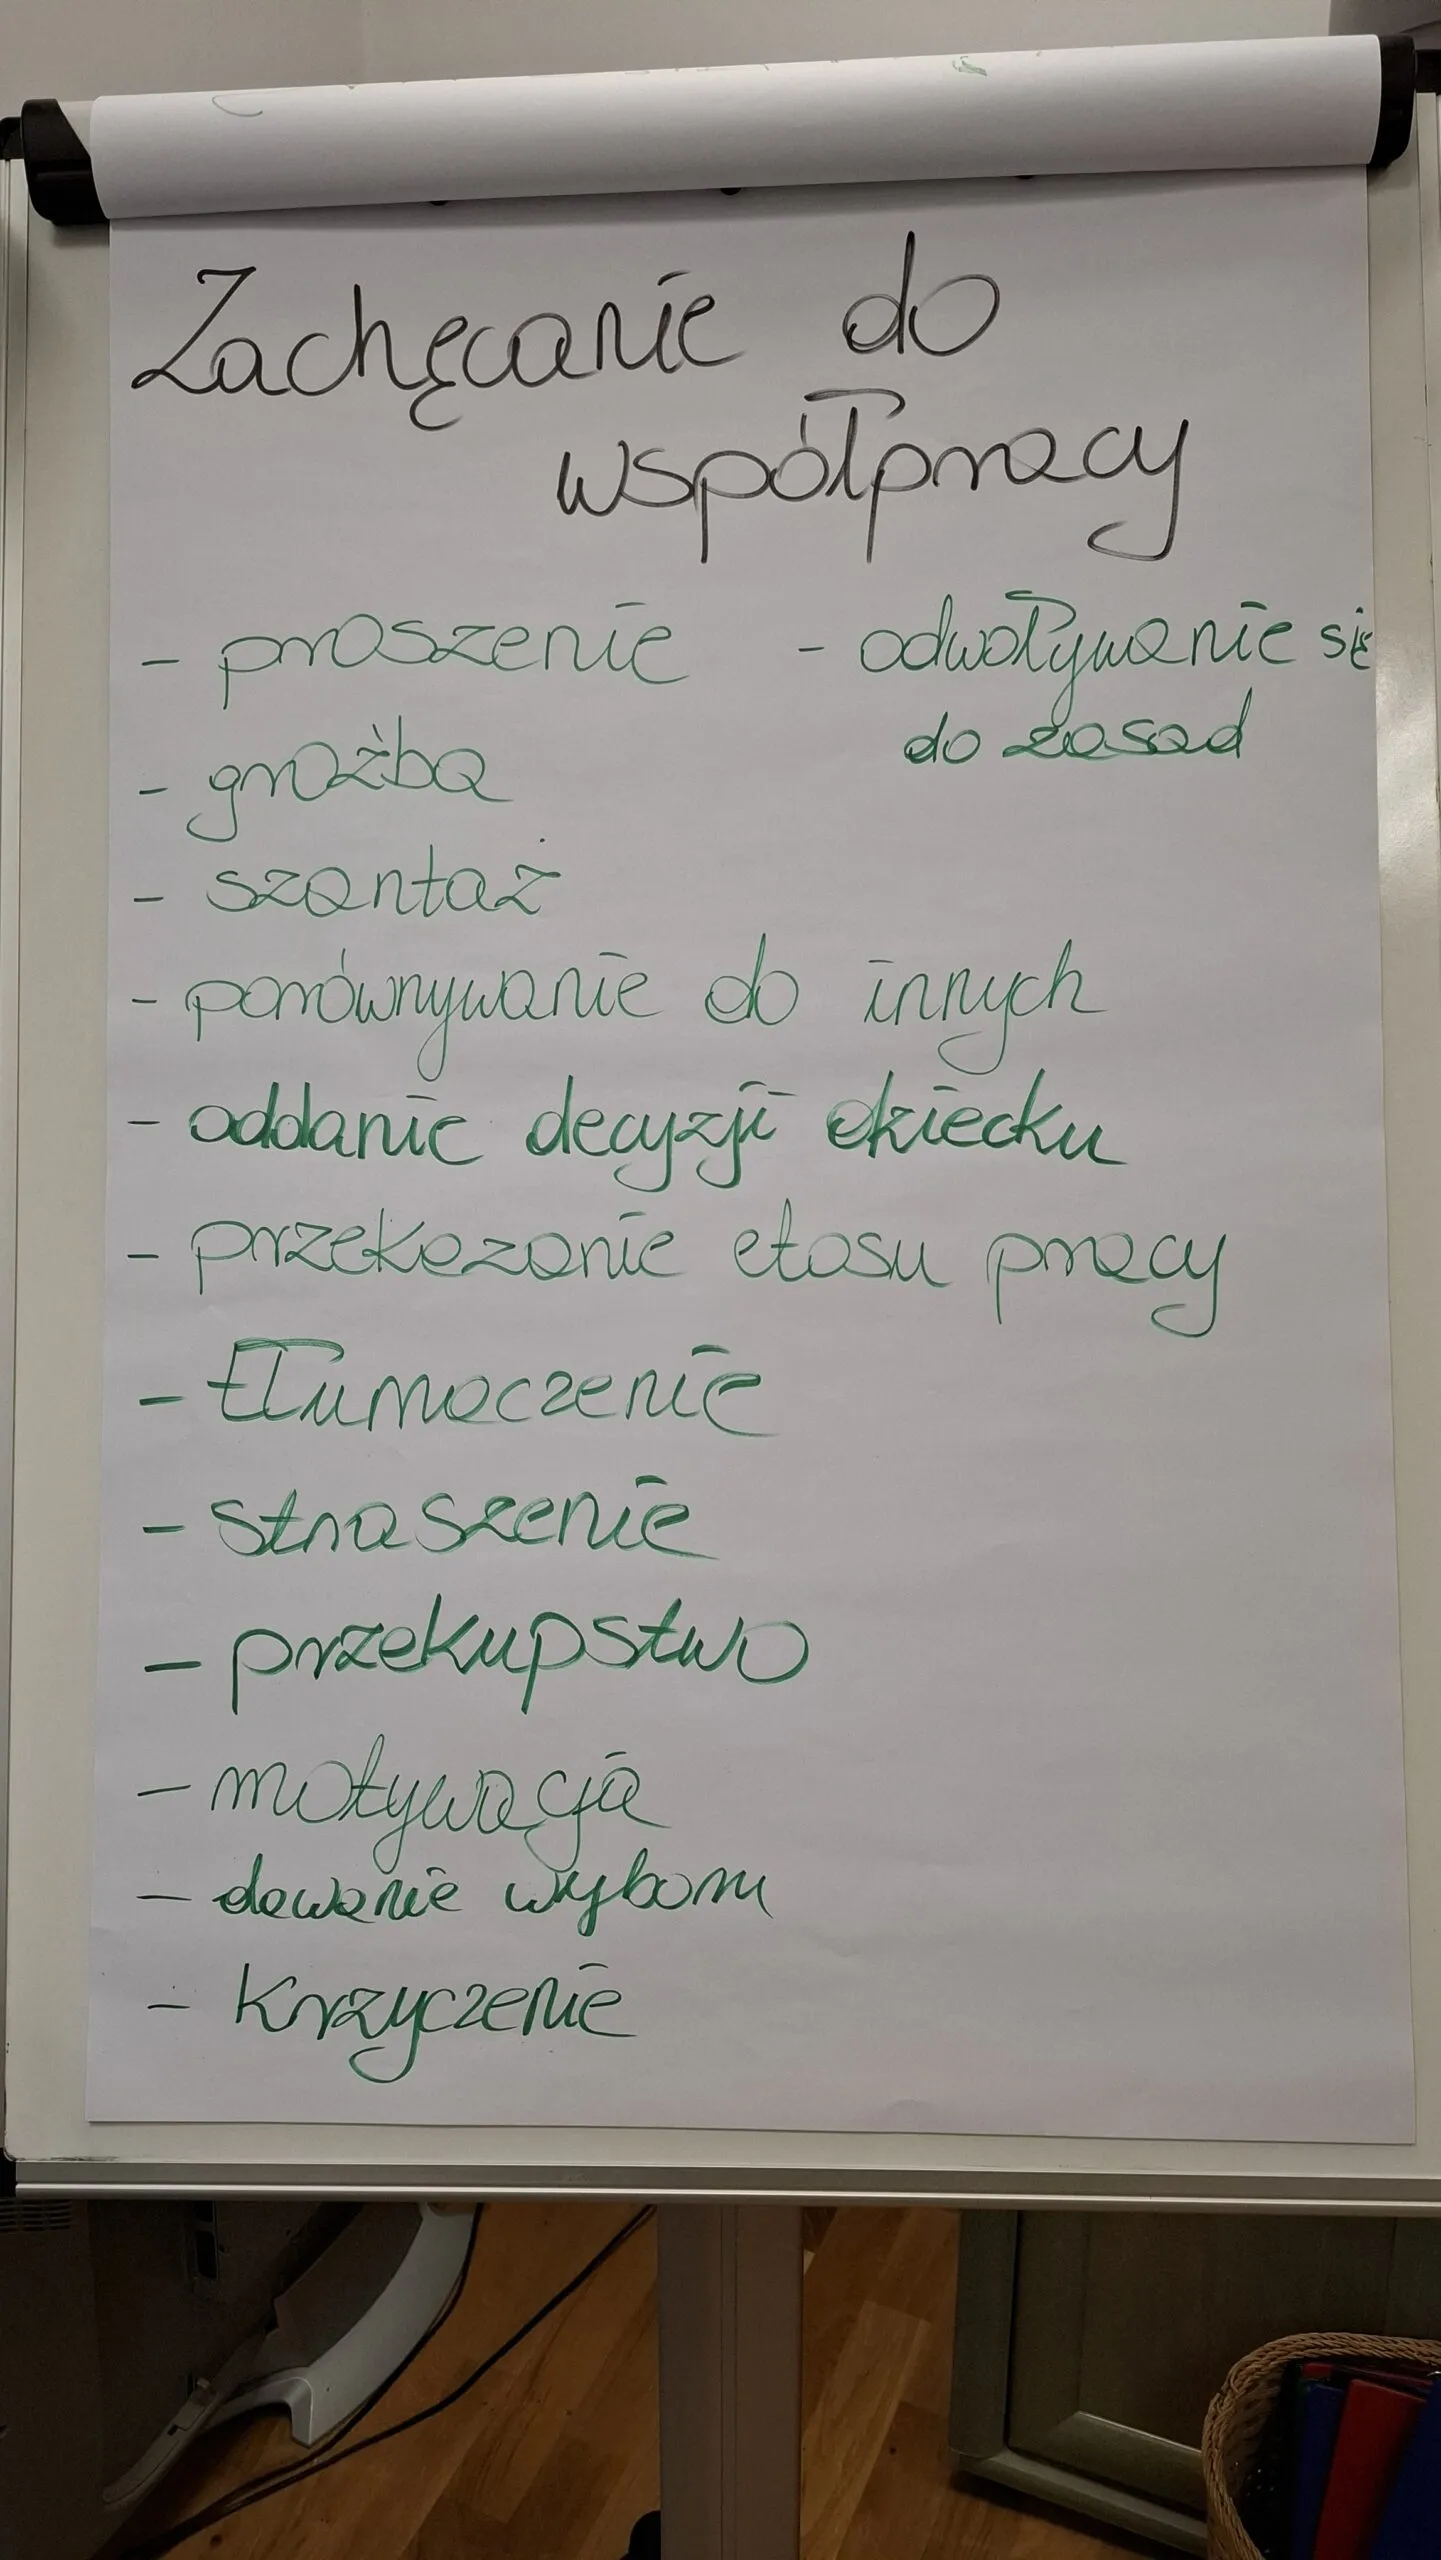 Zachęcanie do
współpracy
- proszenie
- groźba
- szantaż
- porównywanie do innych
- oddanie decyzji dziecku
- przekazanie etosu pracy
- tłumaczenie
- straszenie
- przekupstwo
- motywacja
- dawanie wyboru
- krzyczenie
- odwoływanie się
do zasad